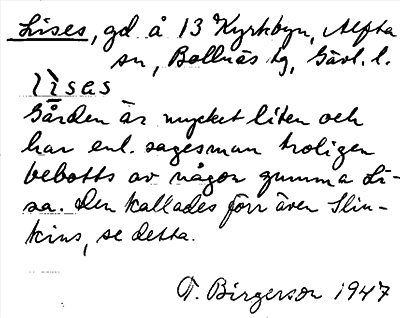 Lises, gd å 13 Kyrkbyn, Alfta
sn, Bollnäs tg, Gävl. l.
lìsas
Gården är mycket liten och
har enl. sagesman troligen
bebotts av någon gumma Li-
sa. Den kallades förr även Slin-
kins, se detta.
T. Birgerson 1947